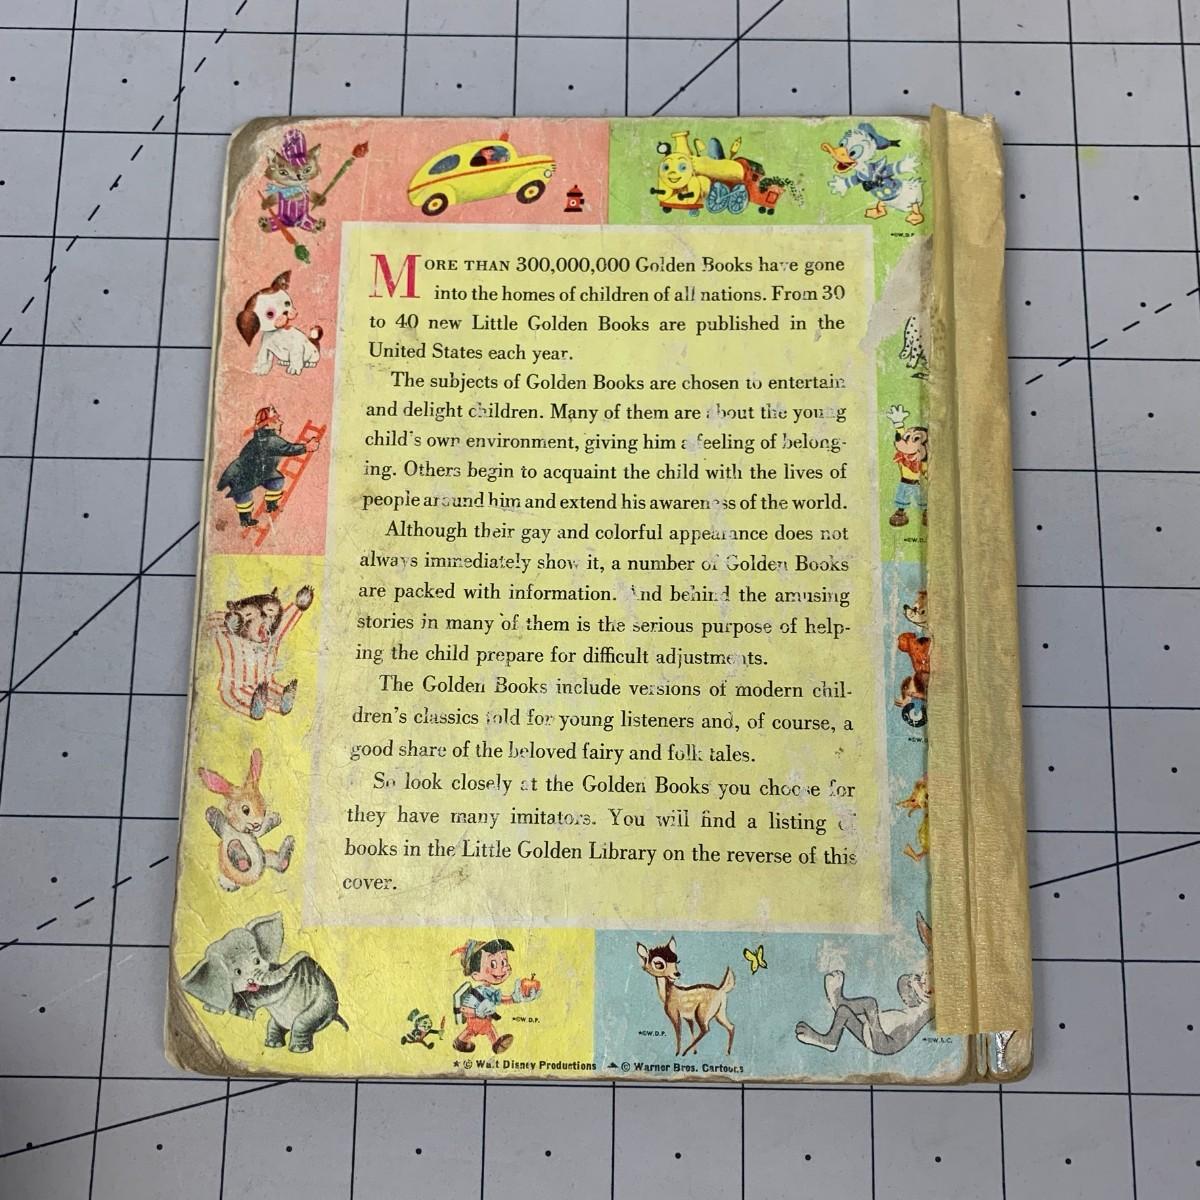 MORE THAN 300,000,000 Golden Books have gone
into the homes of children of all nations. From 30
to 40 new Little Golden Books are published in the
United States each year.
The subjects of Golden Books are chosen to entertain
and delight children. Many of them are about the young
child's own environment, giving him a feeling of belong-
ing. Others begin to acquaint the child with the lives of
people around him and extend his awareness of the world.
Although their gay and colorful appearance does not
always immediately show it, a number of Golden Books
are packed with information. And behind the amusing
stories in many of them is the serious purpose of help-
ing the child prepare for difficult adjustments.
The Golden Books include versions of modern chil-
dren's classics told for young listeners and, of course, a
good share of the beloved fairy and folk tales.
So look closely at the Golden Books you choose for
they have many imitators. You will find a listing of
books in the Little Golden Library on the reverse of this
cover.
*©W.D.P.
*©W.D.P.
*© Walt Disney Productions
© Warner Bros. Cartoons